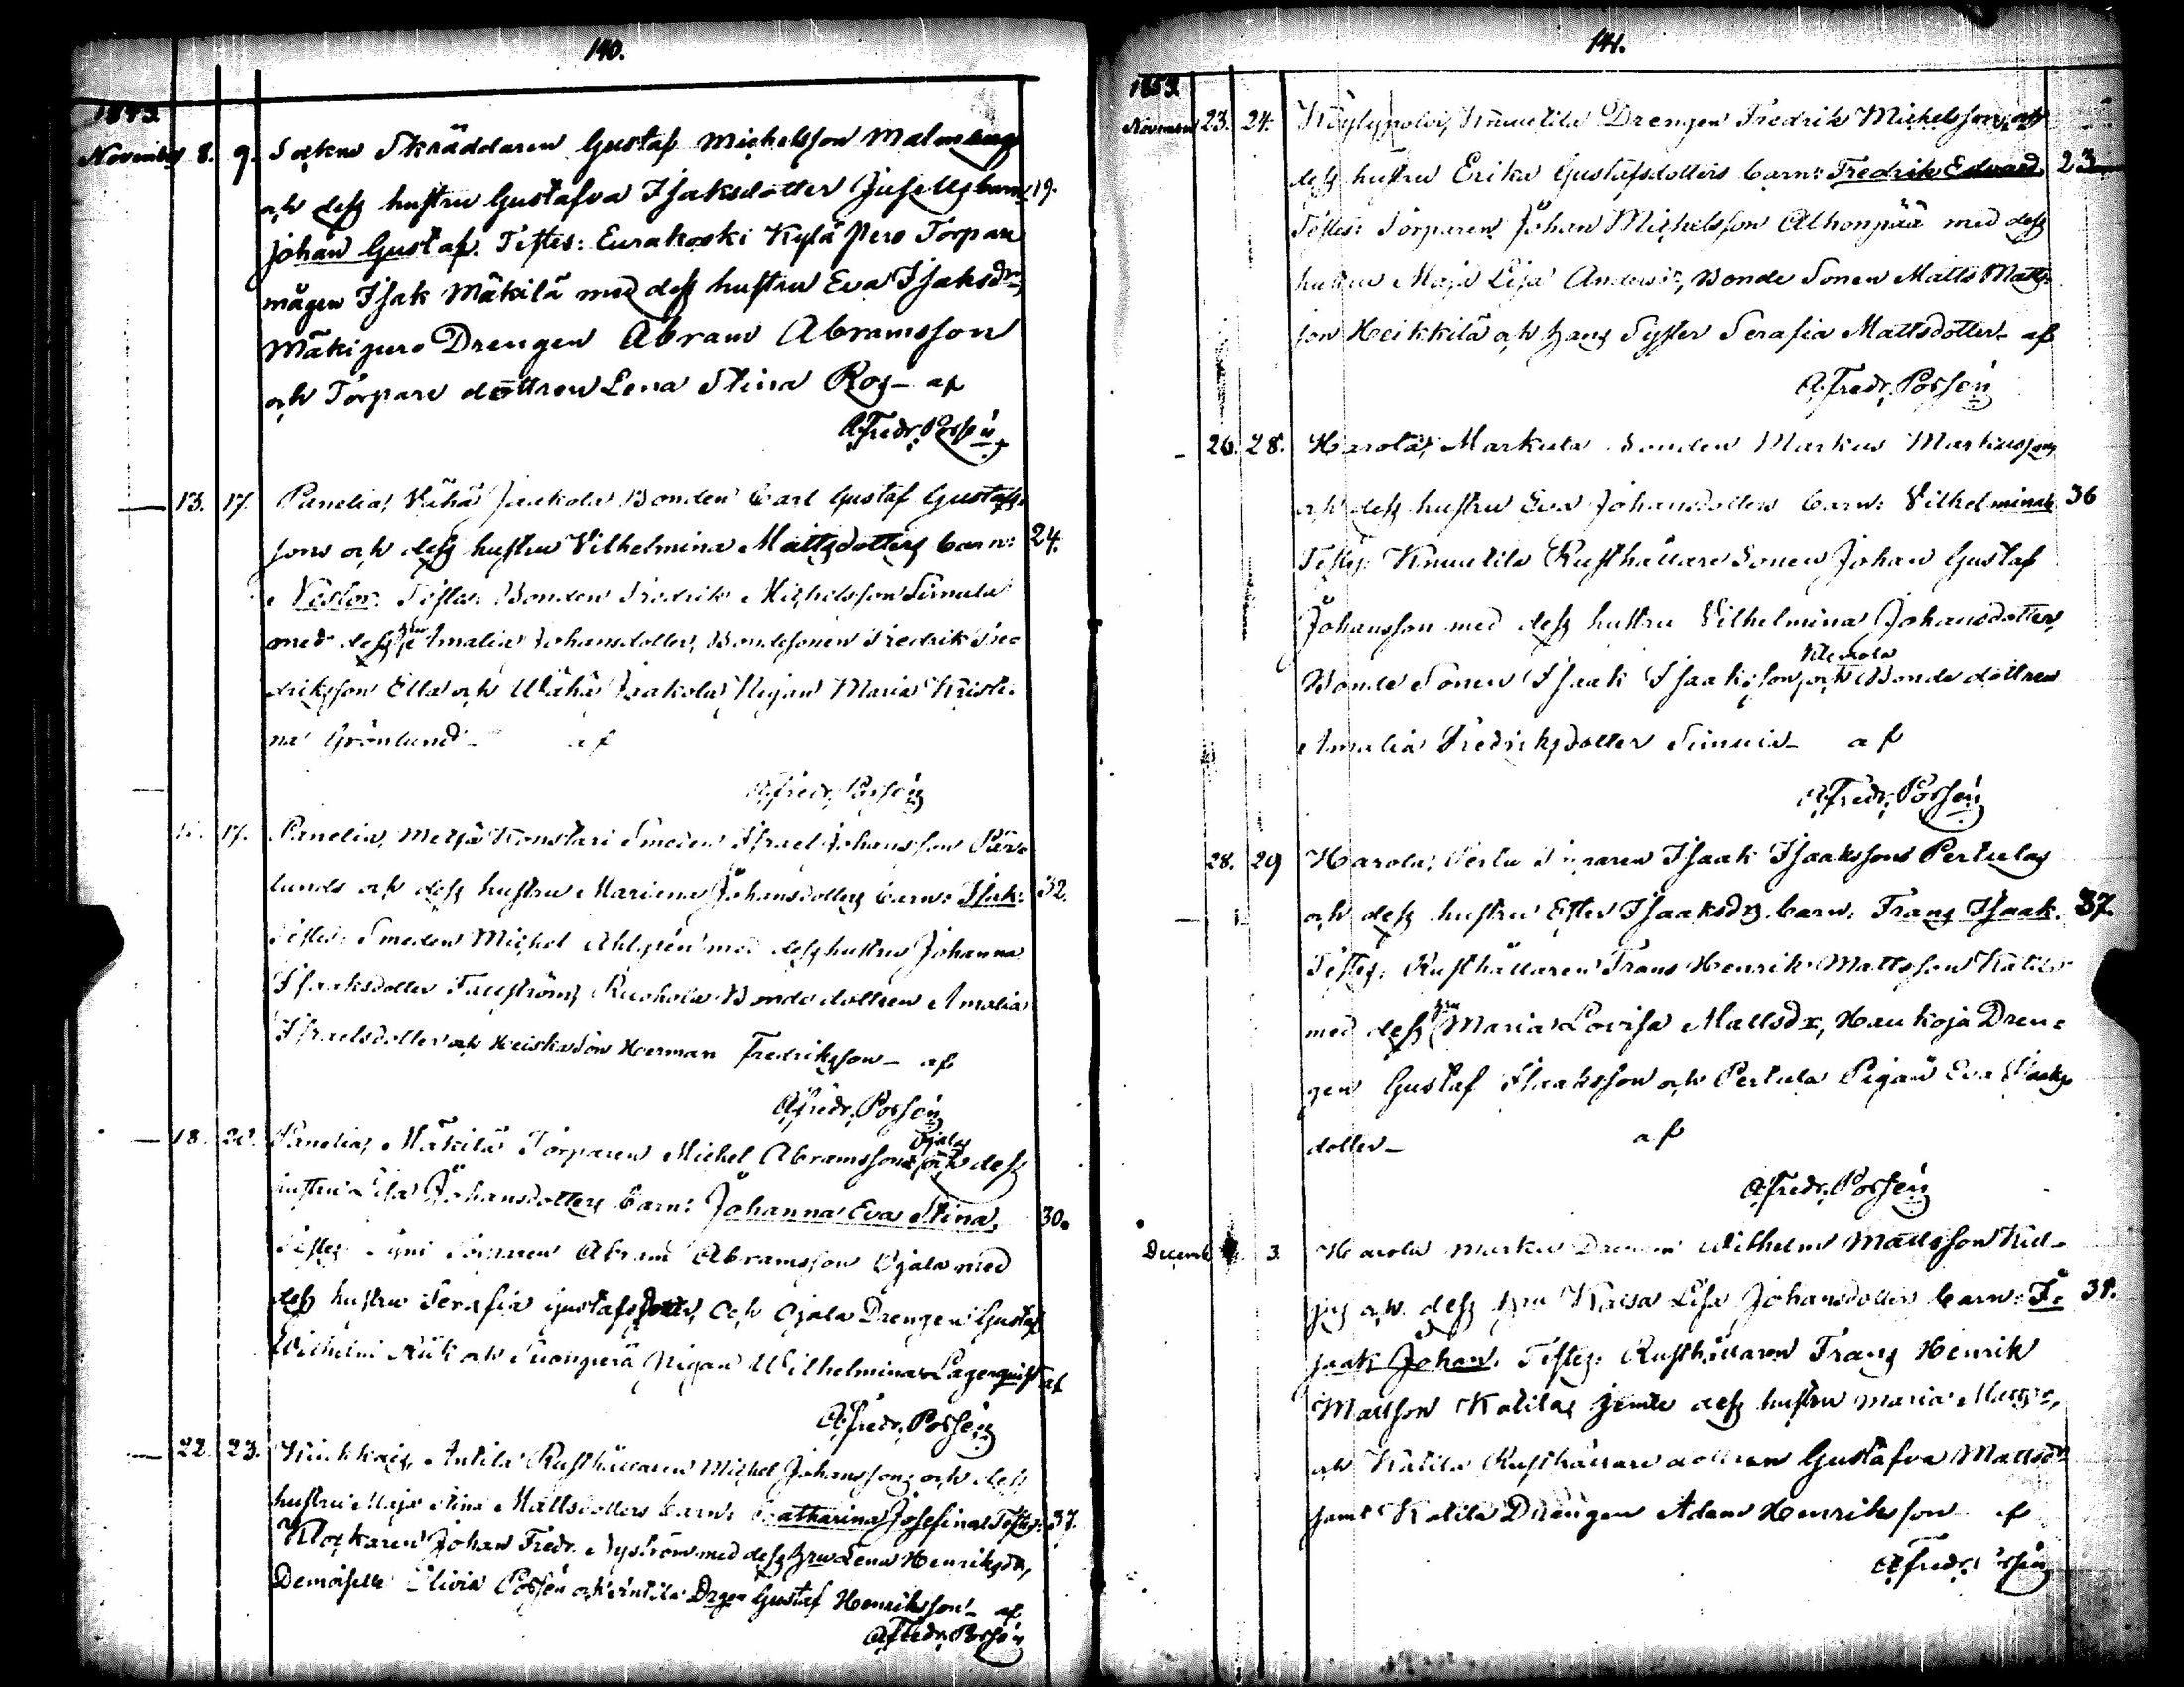 140.
1853.
November 8. 9. Sockne Skräddaren Gustaf Michelsson Malmbergs
och dess hustru Gustafva Isaksdotter Jusells barn: 19.
Johan Gustaf. Testes: Eurakoski Kylä Pero Torpare
mågen Isak Mäkilä med dess hustru Eva Isaksdr,
Mäkipuro Drengen Abram Abramsson
och Torpare dottren Lena Stina Ros— af
A. Fredr. Possén
— 13. 17. Panelia, Vähä Jaakola Bonden Carl Gustaf Gustafs-
sons och dess hustru Vilhelmina Mattsdotters barn: 24.
Nestor. Testes: Bonden Fredrik Michelsson Simula
med dess hu Amalia Johansdotter, Bondesonen Fredrik Fre
driksson Ella och Wähä Jaakola Pigan Maria Kristi-
na Grönlund— af
A. Fredr. Possén
17. Panelia, Metsä Konstari Smeden Israel Johansson
lunds och dess hustru Mariena Johansdotters barn: Isak: 32.
Testes: Smeden Michel Ahlgrén med dess hustru Johanna
Isaksdotter Fagerström, Ruohola Bonde dottren Amalia
Israelsdotter och Heiska Son Herman Fredriksson— af
A. Fredr. Possén
— 18. 20. Panelia, Mäkilä Torparen Michel Abramsson Ojalas och dess
hustru Lisa Johansdotters barn: Johanna Eva Stina. 30.
Testes: Torparen Abram Abramsson Ojala med
dess hustru Serafia Gustafsdotter, och Ojala Drengen Gustaf
Wilhelm och Suonperä Pigan Wilhelmina Lagerquist af
A. Fredr. Possén
— 22. 23. Kiukkais, Antila Rusthållaren Michel Johanssons och dess
hustru Maja Stina Mattsdotters barn: Catharina Josefina. Testes: 37.
Klockaren Johan Fredr. Nyström med dess hru Lena Henriksdr,
Demoiselle Olivia Possén och Antila Drgen Gustaf Henriksson— af
A. Fredr. Possén
141.
1853.
November 23. 24. Köylypolvi, Knuutila Drengen Fredrik Michelssons och
dess hustru Erika Gustafsdotters barn: Fredrik Edvard 23
Testes: Torparen Johan Michelsson Alhonpää med dess
hustru Maja Lisa Andersdr, Bonde Sonen Matts Matts-
son Heikkilä och hans Syster Serafia Mattsdotter— af
A. Fredr. Possén
— 26. 28. Harola, Markula Bonden Markus Markussons
och dess hustru Eva Johansdotters barn: Vilhelmina 36
Testes: Knuutila Rusthållare Sonen Johan Gustaf
Johansson med dess hustru Vilhelmina Johansdotter,
Bonde Sonen Isaak Isaaksson Klemola och Bonde dottren
Amalia Fredriksdotter Simula— af
A. Fredr. Possén
28. 29 Harola, Pertu Torparen Isaak Isaakssons Pertulas
och dess hustru Ester Isaaksdrs barn: Frans Isaak. 37.
Testes: Rusthållaren Frans Henrik Mattsson Katila
med dess hru Maria Lovisa Mattsdr, Haukoja Dren-
gen Gustaf Isaaksson och Pertula Pigan Eva Isaks-
dotter— af
A. Fredr. Possén
Decemb 3 Harola Markula Drengen Wilhelm Mattsson
och dess hru Kaisa Lisa Johansdotters barn: I- 31.
saak Johan. Testes: Rusthållaren Frans Henrik
Mattson Katilas jemte dess hustru Maria Mattsdr,
och Katila Rusthållare dottren Gustafva Mattsdr
samt Katila Drängen Adam Henriksson af
A. Fredr. Possén